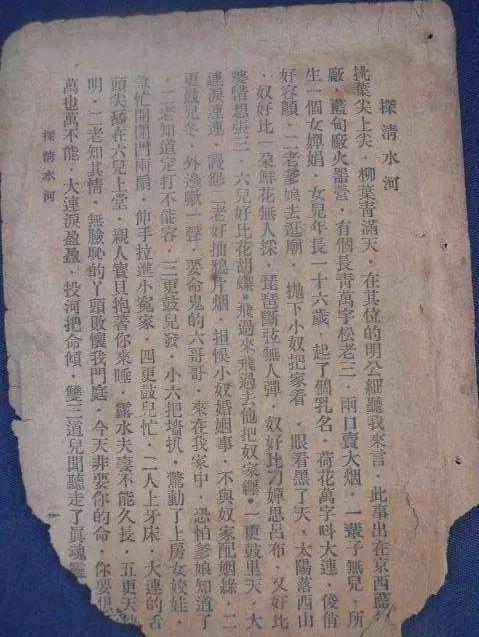 探清水河
桃葉尖上尖．柳葉青滿天．在其位的明公細聽我來言．此事出在京西藍
廠．藍甸廠火器營．有個長青萬字松老三．兩口賣大烟．一輩子無兒．所
生一個女嬋娟．女兒年長一十六歲．起了個乳名．荷花萬字呌大連．俊俏
好容顏．二老爹娘去逛廟．拋下小奴把家看．眼看黑了天．太陽落西山
．奴好比一朶鮮花無人採．琵琶斷弦無人彈．奴好比刁嬋思呂布．又好比
鶯惜想張三．六兒好比花胡蝶．飛過來飛過去他把奴家纒．一更鼓里天．大
連淚連連．謾怨二老好抽鴉片烟．担悮小奴婚姻事．不與奴家配姻緣．二
更鼓兒冬．外邊嗽一聲．要命鬼的六哥哥．來在我家中．恐怕爹娘知道了
．二老知道定打不能容．三更鼓兒發．小六把墻扒．驚動了上房女姣娃．
急忙開開門兩扇．伸手拉進小寃家．四更鼓兒忙．二人上牙床．大連的舌
頭尖在六兒上堂．親人寳貝抱著你來睡．露水夫妻不能久長．五更天
明．二老知其情．無臉恥的丫頭敗懷我門庭．今天非要你的命．你要想
萬也萬不能．大連淚盈盈．投河把命傾．雙三道兒聞聽走了眞魂
探清水河
一